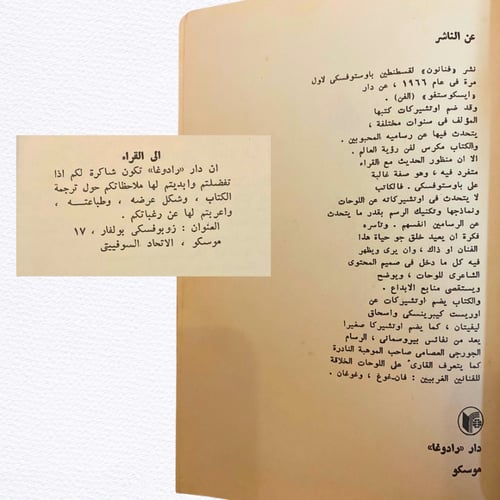 عن الناشر
نشر «فنانون» لقسطنطين باوستوفسكي لاول
مرة في عام ١٩٦٦ ، عن دار
«ايسكوستفو» (الفن) .
وقد ضم اوتشيركات كتبها
المؤلف في سنوات مختلفة ،
يتحدث فيها عن رساميه المحبوبين .
والكتاب مكرس لفن رؤية العالم .
الا ان منظور الحديث مع القراء
متفرد فيه ، وهو صفة غالبة
على باوستوفسكي . فالكاتب
لا يتحدث في اوتشيركاته عن اللوحات
ونماذجها وتكنيك الرسم بقدر ما يتحدث
عن الرسامين انفسهم . وتأسره
فكرة ان يعيد خلق جو حياة هذا
الفنان او ذاك ، وان يرى ويظهر
فيه كل ما دخل في صميم المحتوى
الشاعرى للوحات ، ويوضح
ويستقصى منابع الابداع .
والكتاب يضم اوتشيركات عن
اوريست كيبرينسكى واسحاق
ليفيتان ، كما يضم اوتشيركا صغيرا
يعد من نفائس بيروسمانى ، الرسام
الجورجى العصامى صاحب الموهبة النادرة
كما يتعرف القارىء على اللوحات الخلاقة
للفنانين الغربيين : فان-غوغ ، وغوغان .
دار «رادوغا»
موسكو
الى القراء
ان دار «رادوغا» تكون شاكرة لكم اذا
تفضلتم وابديتم لها ملاحظاتكم حول ترجمة
الكتاب ، وشكل عرضه ، وطباعته ،
واعربتم لها عن رغباتكم .
العنوان : زوبوفسكى بولفار ، ١٧
موسكو ، الاتحاد السوفييتى